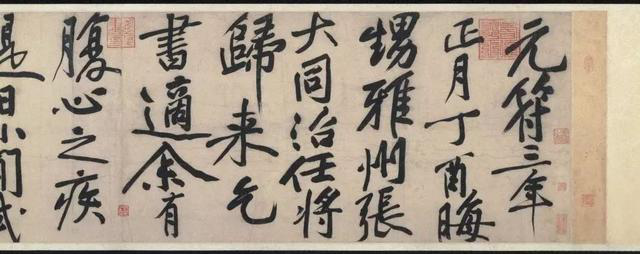 元符三年
正月丁酉晦
甥雅州張
大同治任將
歸来乞
書適余有
腹心之疾
是日小閒試